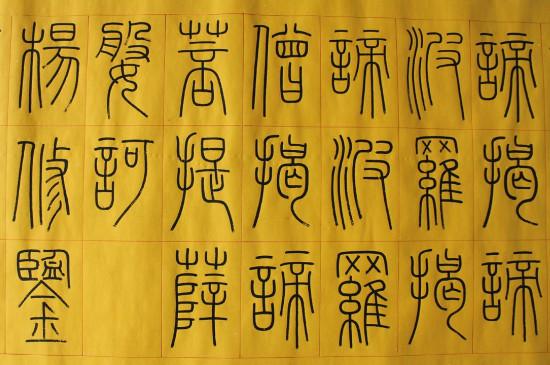 諦揭諦
波羅揭
諦波羅
僧揭諦
菩提薩
婆訶
楊修鑒